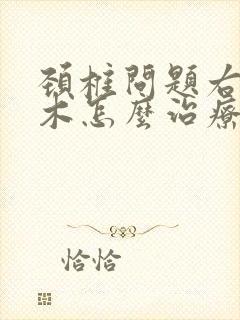 頚柱問題右
木怎麼治療
恰恰